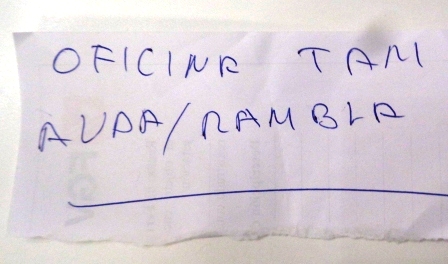 OFICINA TAM
AVDA/RAMBLA